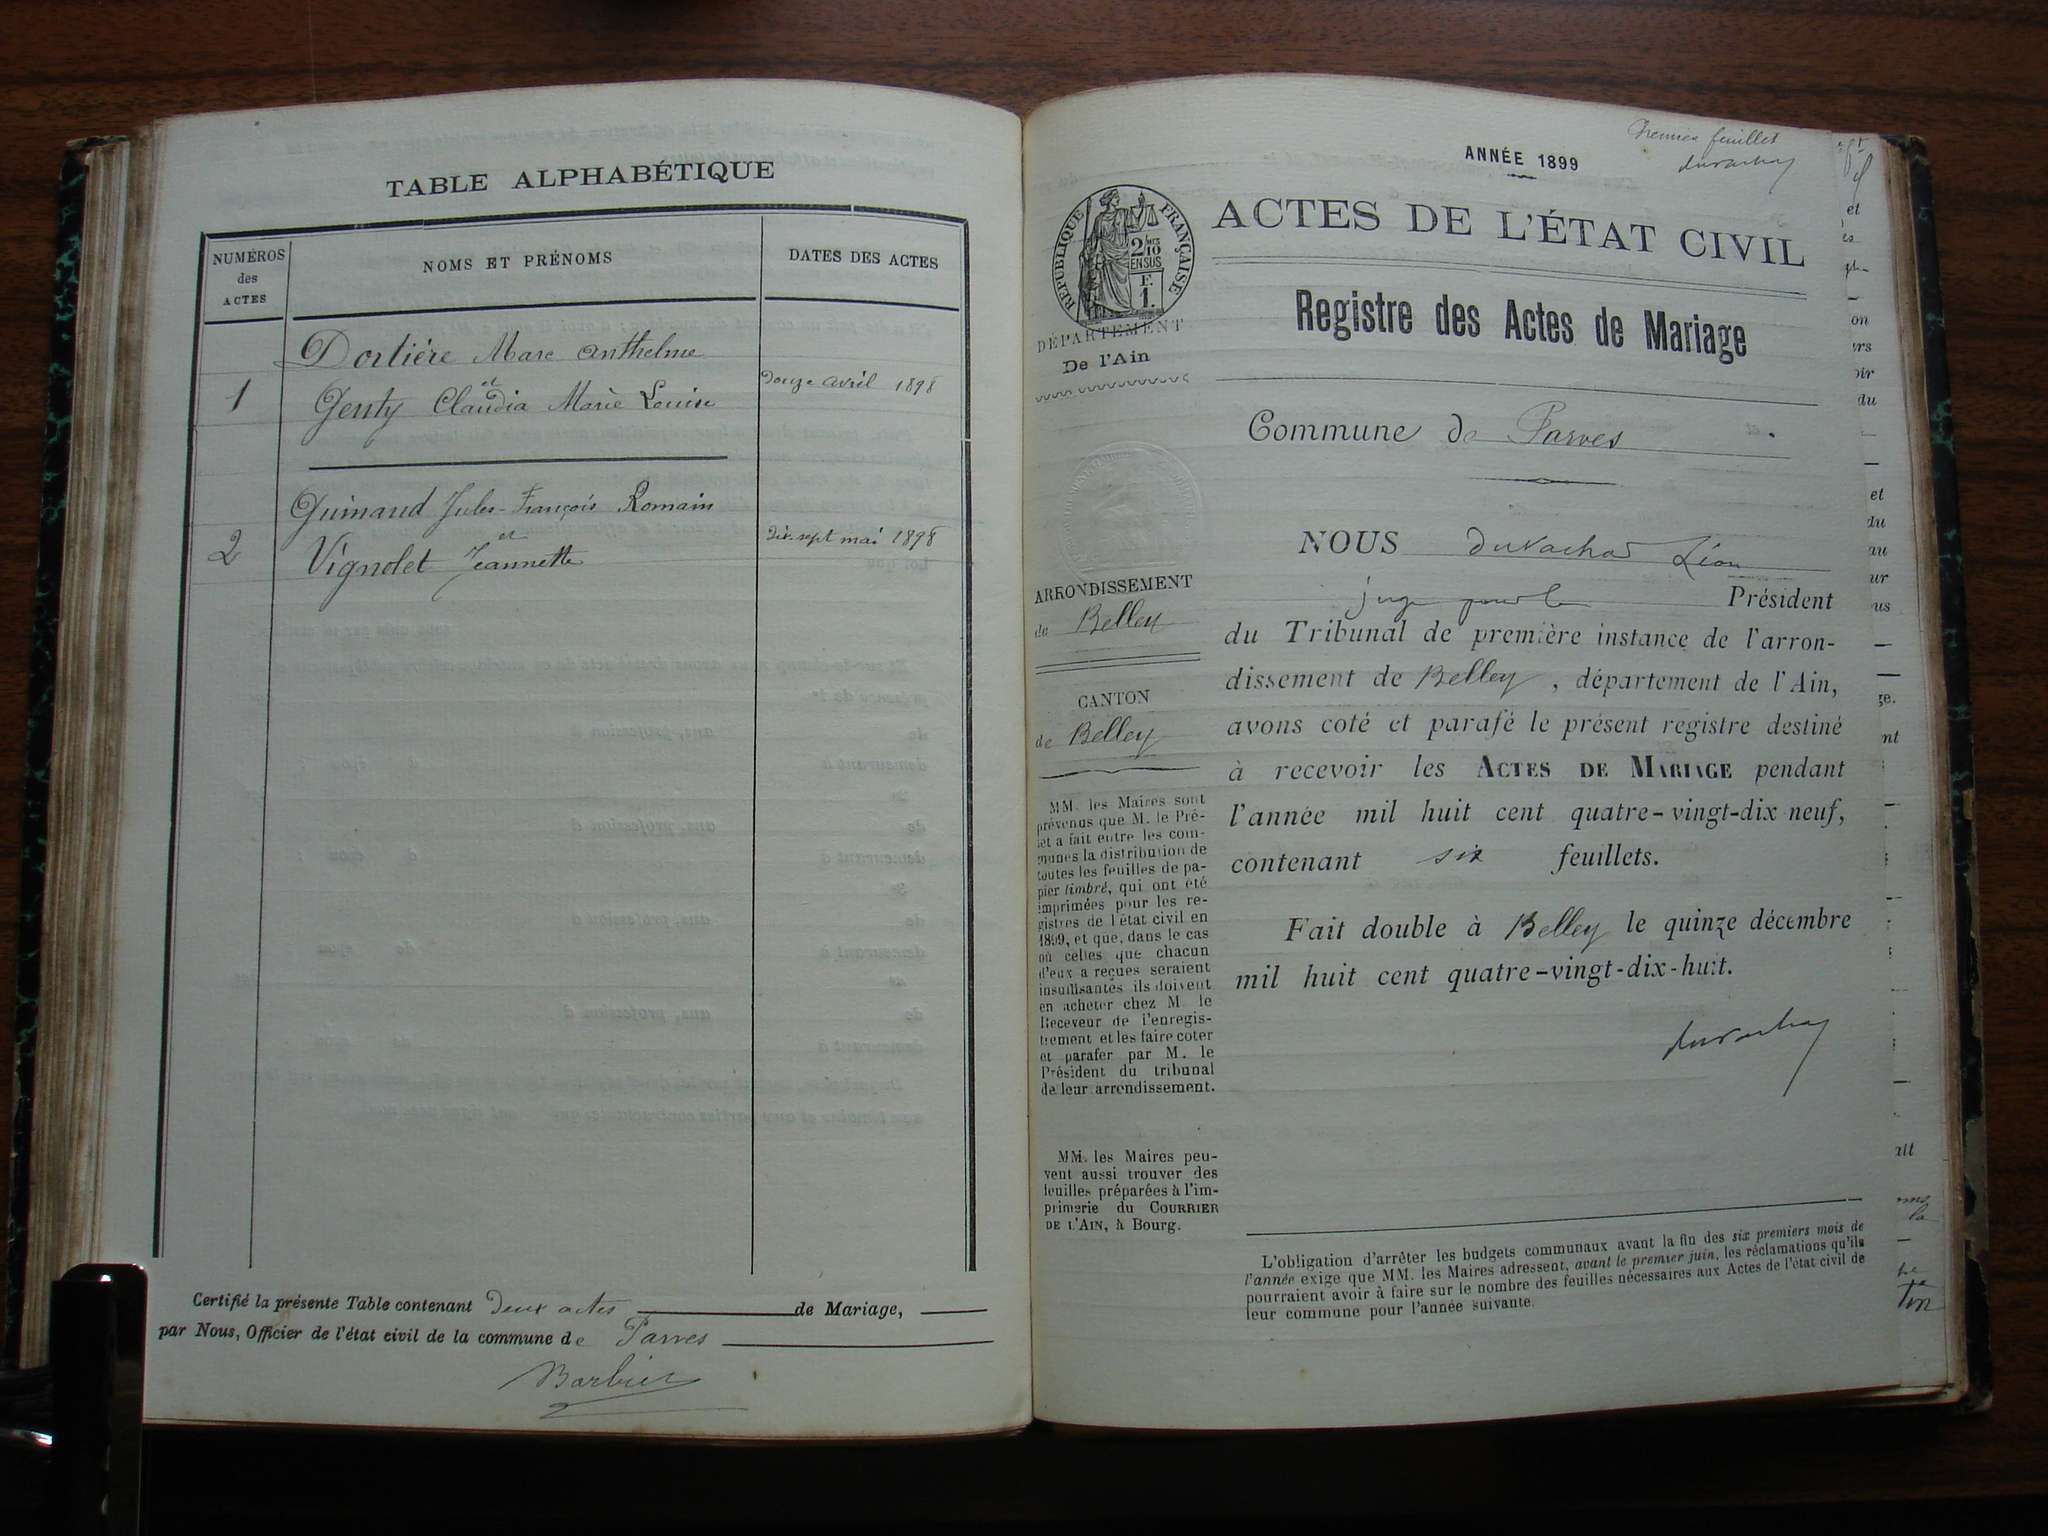 TABLE ALPHABÉTIQUE
NUMÉROS
des
ACTES
NOMS ET PRÉNOMS
DATES DES ACTES
Dortière Marc Anthelme
et
1
Genty Claudia Marie Louise
douze avril 1898
Guinaud Jules-François Romain
et
2
Vignolet Jeannette
dix-sept mai 1898
Certifié la présente Table contenant deux actes de Mariage,
par Nous, Officier de l'état civil de la commune de Parves
Barbier
Premier feuillet
ANNÉE 1899
RÉPUBLIQUE FRANÇAISE
2/10 MES
EN SUS
F.
1.
ACTES DE L'ÉTAT CIVIL
Registre des Actes de Mariage
DÉPARTEMENT
De l'Ain
Commune de Parves
ARRONDISSEMENT
de Belley
CANTON
de Belley
MM. les Maires sont
prévenus que M. le Pré-
fet a fait entre les com-
munes la distribution de
toutes les feuilles de pa-
pier timbré, qui ont été
imprimées pour les re-
gistres de l'état civil en
1899, et que, dans le cas
où celles que chacun
d'eux a reçues seraient
insuffisantes ils doivent
en acheter chez M. le
Receveur de l'enregis-
trement et les faire coter
et parafer par M. le
Président du tribunal
de leur arrondissement.
MM. les Maires peu-
vent aussi trouver des
feuilles préparées à l'im-
primerie du COURRIER
DE L'AIN, à Bourg.
NOUS Léon
juge pour le Président
du Tribunal de première instance de l'arron-
dissement de Belley, département de l'Ain,
avons coté et parafé le présent registre destiné
à recevoir les ACTES DE MARIAGE pendant
l'année mil huit cent quatre-vingt-dix neuf,
contenant six feuillets.
Fait double à Belley le quinze décembre
mil huit cent quatre-vingt-dix-huit.
L'obligation d'arrêter les budgets communaux avant la fin des six premiers mois de
l'année exige que MM. les Maires adressent, avant le premier juin, les réclamations qu'ils
pourraient avoir à faire sur le nombre des feuilles nécessaires aux Actes de l'état civil de
leur commune pour l'année suivante.